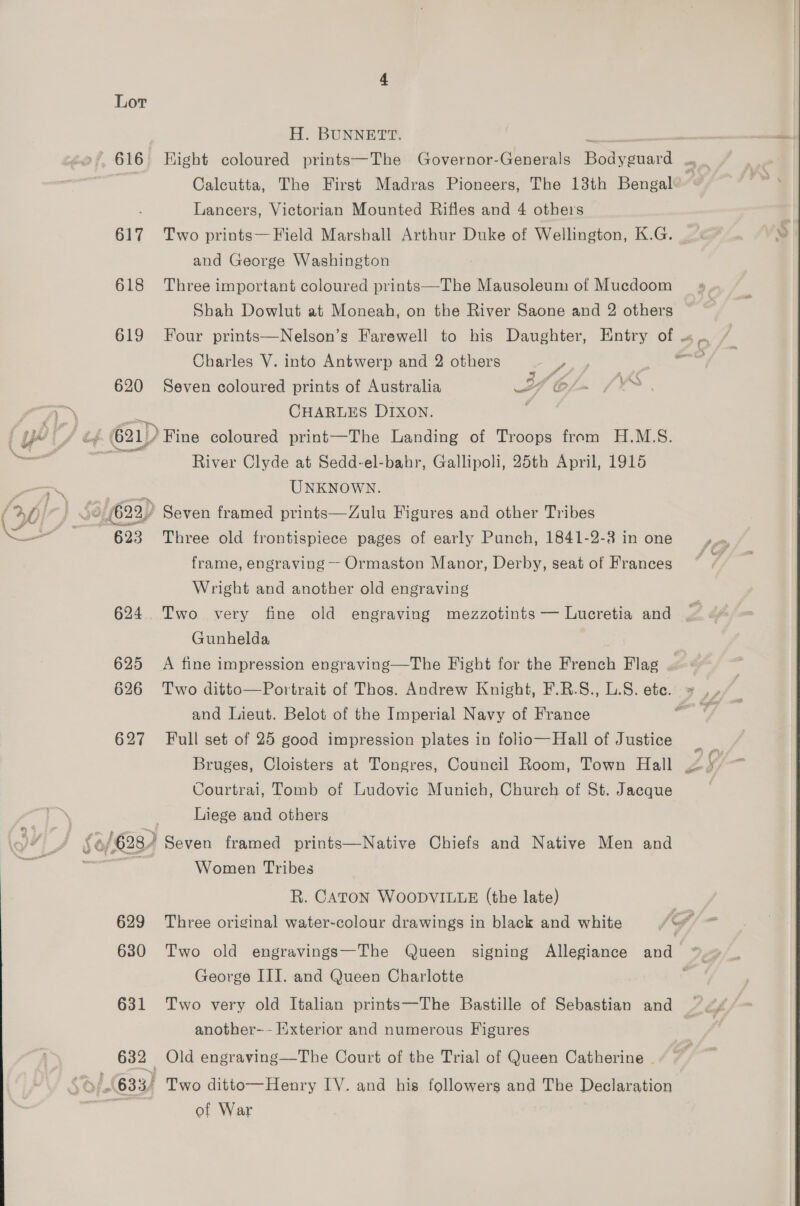 4
Lot
H. BUNNETT.
616 Eight coloured prints—The Governor-Generals Bodyguard
Calcutta, The First Madras Pioneers, The 13th Bengal
Lancers, Victorian Mounted Rifles and 4 others
617 Two prints—Field Marshall Arthur Duke of Wellington, K.G.
and George Washington
618 Three important coloured prints—The Mausoleum of Mucdoom
Shah Dowlut at Moneah, on the River Saone and 2 others
619 Four prints—Nelson's Farewell to his Daughter, Entry of
Charles V. into Antwerp and 2 others
620 Seven coloured prints of Australia
CHARLES DIXON.
621 Fine coloured print—The Landing of Troops from H.M.S.
River Clyde at Sedd-el-bahr, Gallipoli, 25th April, 1915
UNKNOWN.
622 Seven framed prints—Zulu Figures and other Tribes
623 Three old frontispiece pages of early Punch, 1841-2-3 in one
frame, engraving—Ormaston Manor, Derby, seat of Frances
Wright and another old engraving
624 Two very fine old engraving mezzotints — Lucretia and
Gunhelda
625 A fine impression engraving—The Fight for the French Flag
626 Two ditto—Portrait of Thos. Andrew Knight, F.R.S., L.S. etc.
and Lieut. Belot of the Imperial Navy of France
627 Full set of 25 good impression plates in folio—Hall of Justice
Bruges, Cloisters at Tongres, Council Room, Town Hall
Courtrai, Tomb of Ludovic Munich, Church of St. Jacque
Liege and others
628 Seven framed prints—Native Chiefs and Native Men and
Women Tribes
R. CATON WOODVILLE (the late)
629 Three original water-colour drawings in black and white
630 Two old engravings—The Queen signing Allegiance and
George III. and Queen Charlotte
631 Two very old Italian prints—The Bastille of Sebastian and
another--Exterior and numerous Figures
632 Old engraving—The Court of the Trial of Queen Catherine
633 Two ditto—Henry IV. and his followers and The Declaration
of War